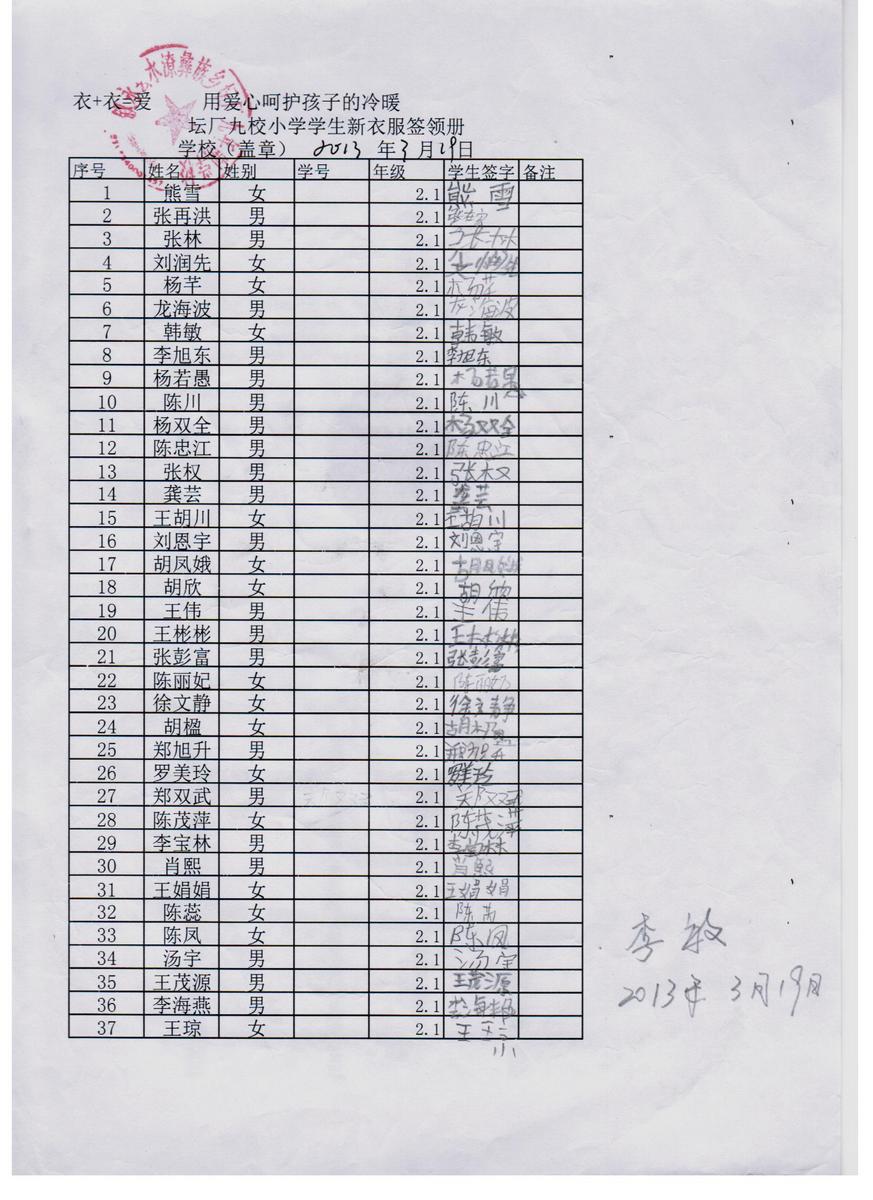 衣+衣=爱 用爱心呵护孩子的冷暖
坛厂九校小学学生新衣服签领册
学校（盖章） 2013 年3月19日
序号 姓名 性别 学号 年级 学生签字 备注
1 熊雪 女 2.1 熊雪
2 张再洪 男 2.1
3 张林 男 2.1 张林
4 刘润先 女 2.1
5 杨芊 女 2.1 杨芊
6 龙海波 男 2.1 龙海波
7 韩敏 女 2.1 韩敏
8 李旭东 男 2.1 李旭东
9 杨若愚 男 2.1 杨若愚
10 陈川 男 2.1 陈川
11 杨双全 男 2.1 杨双全
12 陈忠江 男 2.1 陈忠江
13 张权 男 2.1 张权
14 龚芸 男 2.1 龚芸
15 王胡川 女 2.1 王胡川
16 刘恩宇 男 2.1 刘恩宇
17 胡凤娥 女 2.1 胡凤娥
18 胡欣 女 2.1 胡欣
19 王伟 男 2.1 王伟
20 王彬彬 男 2.1 王彬彬
21 张彭富 男 2.1 张彭富
22 陈丽妃 女 2.1 陈丽妃
23 徐文静 女 2.1 徐文静
24 胡楹 女 2.1 胡楹
25 郑旭升 男 2.1 郑旭升
26 罗美玲 女 2.1 罗美玲
27 郑双武 男 2.1 郑双武
28 陈茂萍 女 2.1 陈茂萍
29 李宝林 男 2.1 李宝林
30 肖熙 男 2.1 肖熙
31 王娟娟 女 2.1 王娟娟
32 陈蕊 女 2.1
33 陈凤 女 2.1 陈凤
34 汤宇 男 2.1 汤宇
35 王茂源 男 2.1 王茂源
36 李海燕 男 2.1 李海燕
37 王琼 女 2.1 王琼
李敏
2013年3月19日